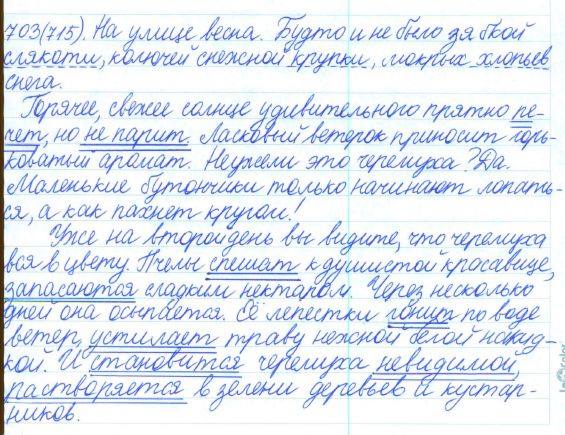 703(715). На улице весна. Будто и не было зябкой
слякоти, колючей снежной крупки, мокрых хлопьев
снега.
Горячее, свежее солнце удивительного прятно пе-
чет, но не парит. Ласковый ветерок приносит горь-
коватый аромат. Неужели это черемуха? Да.
Маленькие бутончики только начинают лопать-
ся, а как пахнет кругом!
Уже на второй день вы видите, что черемуха
вся в цвету. Пчелы спешат к душистой красавице,
запасаются сладким нектаром. Через несколько
дней она осыпается. Её лепестки гонит по воде
ветер, устилает траву нежной белой накид-
кой. И становится черемуха невидимой,
растворяется в зелени деревьев и кустар-
ников.